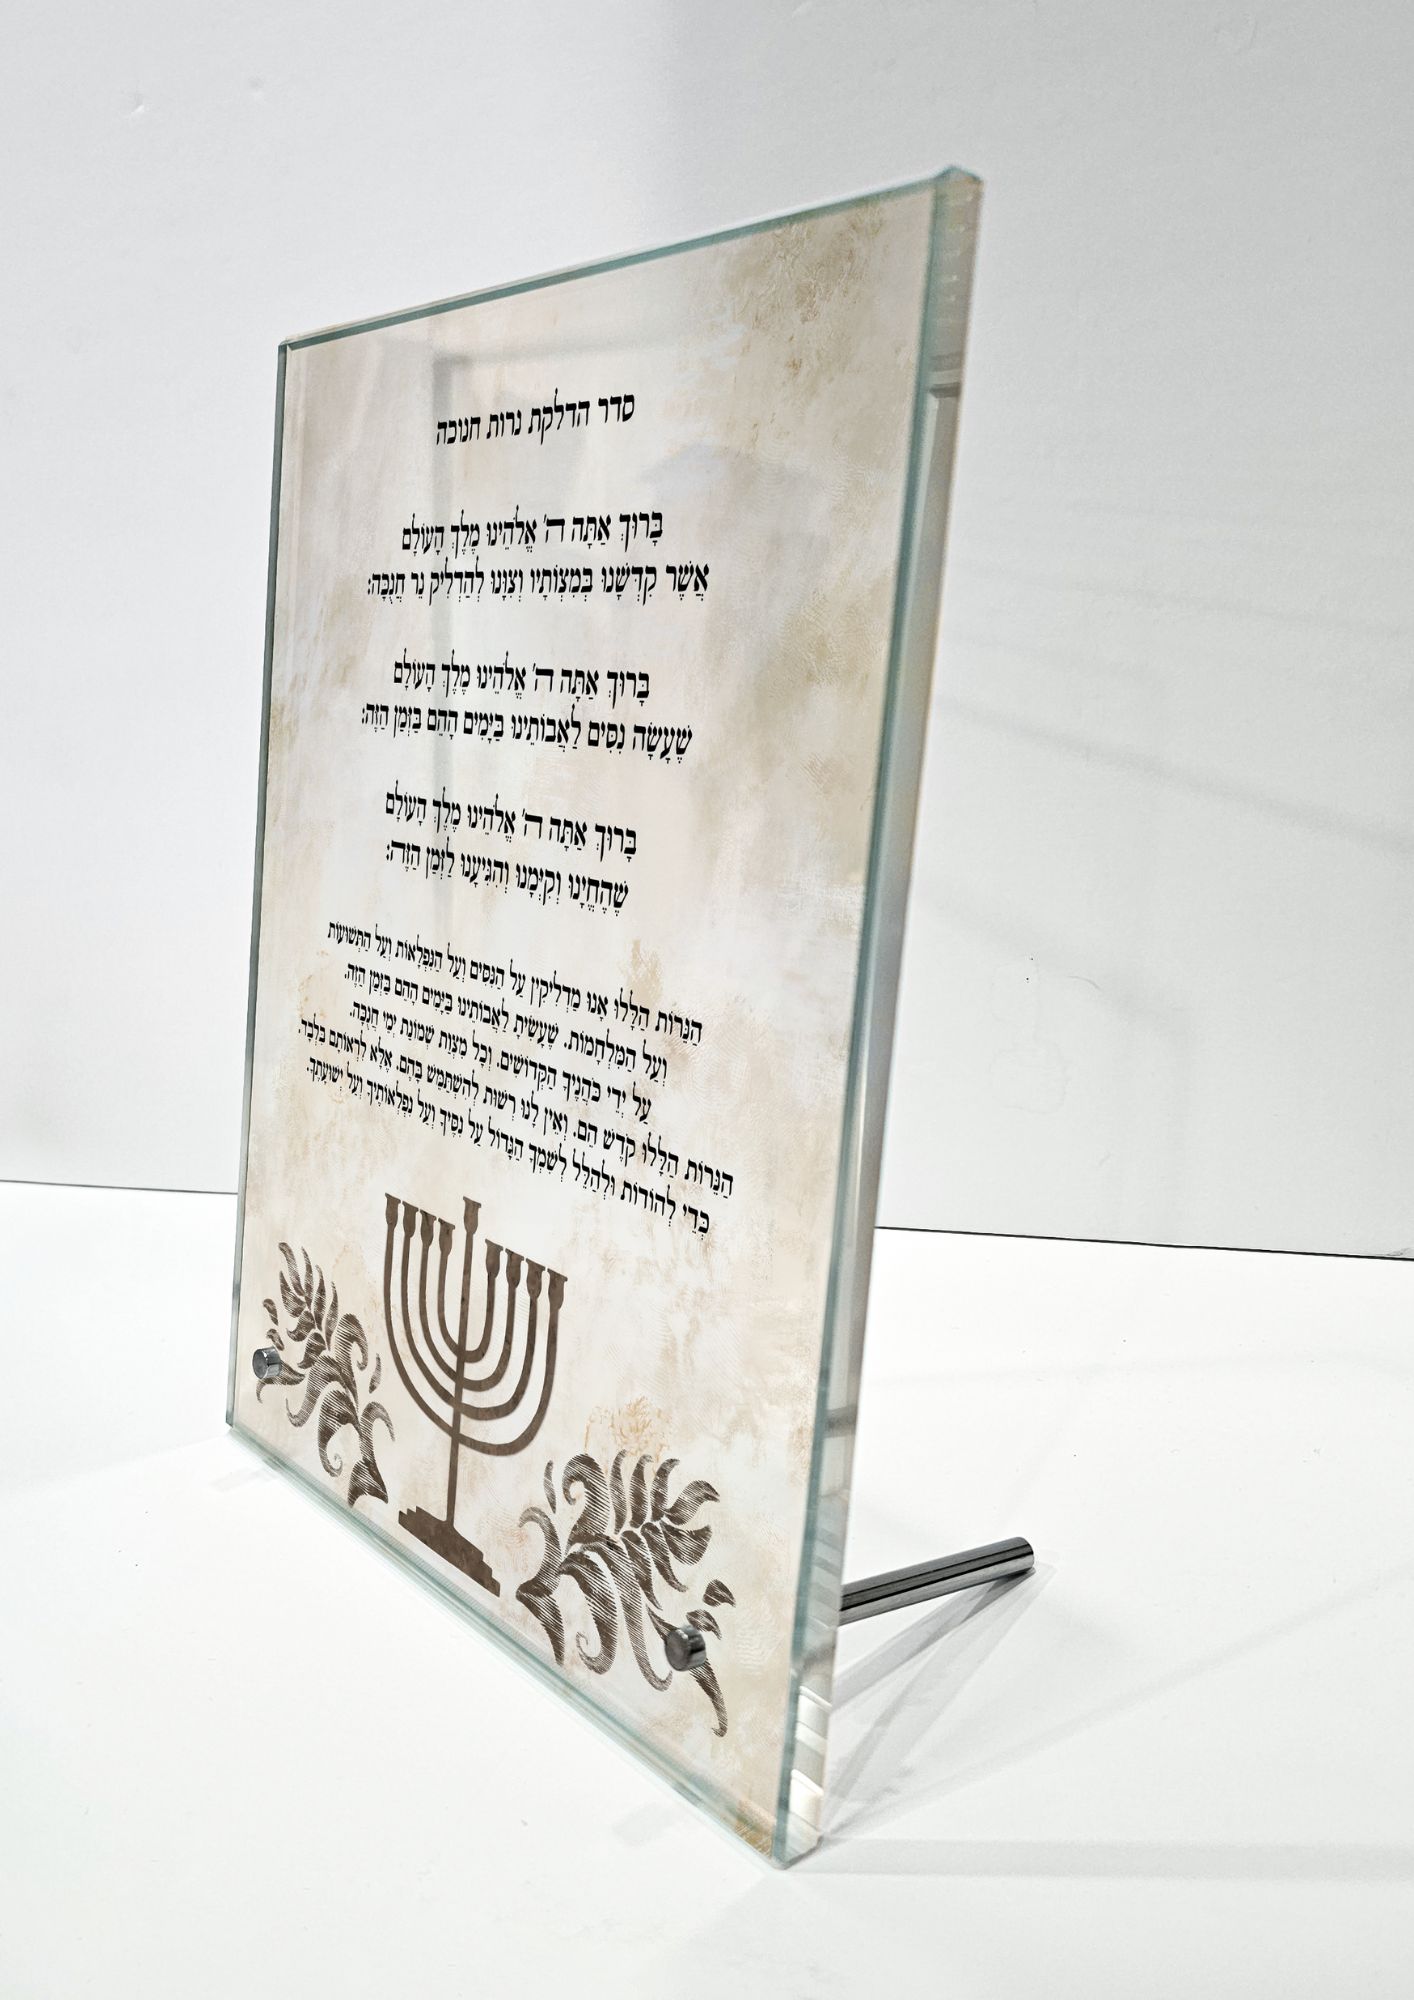 סדר הדלקת נרות חנוכה
בָּרוּךְ אַתָּה ה' אֱלֹהֵינוּ מֶלֶךְ הָעוֹלָם
אֲשֶׁר קִדְּשָׁנוּ בְּמִצְוֹתָיו וְצִוָּנוּ לְהַדְלִיק נֵר חֲנֻכָּה:
בָּרוּךְ אַתָּה ה' אֱלֹהֵינוּ מֶלֶךְ הָעוֹלָם
שֶׁעָשָׂה נִסִּים לַאֲבוֹתֵינוּ בַּיָּמִים הָהֵם בַּזְּמַן הַזֶּה:
בָּרוּךְ אַתָּה ה' אֱלֹהֵינוּ מֶלֶךְ הָעוֹלָם
שֶׁהֶחֱיָנוּ וְקִיְּמָנוּ וְהִגִּיעָנוּ לַזְּמַן הַזֶּה:
הַנֵּרוֹת הַלָּלוּ אָנוּ מַדְלִיקִין עַל הַנִּסִּים וְעַל הַנִּפְלָאוֹת וְעַל הַתְּשׁוּעוֹת
וְעַל הַמִּלְחָמוֹת. שֶׁעָשִׂיתָ לַאֲבוֹתֵינוּ בַּיָּמִים הָהֵם בַּזְּמַן הַזֶּה.
עַל יְדֵי כֹּהֲנֶיךָ הַקְּדוֹשִׁים. וְכָל מִצְוַת שְׁמוֹנַת יְמֵי חֲנֻכָּה.
הַנֵּרוֹת הַלָּלוּ קֹדֶשׁ הֵם. וְאֵין לָנוּ רְשׁוּת לְהִשְׁתַּמֵּשׁ בָּהֶם. אֶלָּא לִרְאוֹתָם בִּלְבָד.
כְּדֵי לְהוֹדוֹת וּלְהַלֵּל לְשִׁמְךָ הַגָּדוֹל עַל נִסֶּיךָ וְעַל נִפְלְאוֹתֶיךָ וְעַל יְשׁוּעָתֶךָ.